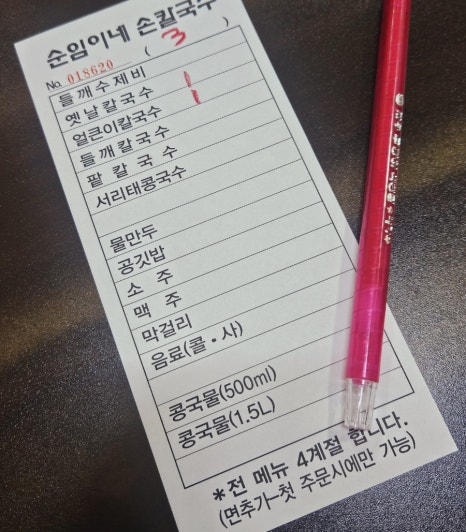 순임이네 손칼국수
No. 018620 ( 3 )
들깨수제비
옛날칼국수 1
얼큰이칼국수 1
들깨칼국수
팥칼국수
서리태콩국수
물만두
공깃밥
소주
맥주
막걸리
음료(콜·사)
콩국물(500ml)
콩국물(1.5L)
*전 메뉴 4계절 합니다.
(면추가-첫 주문시에만 가능)